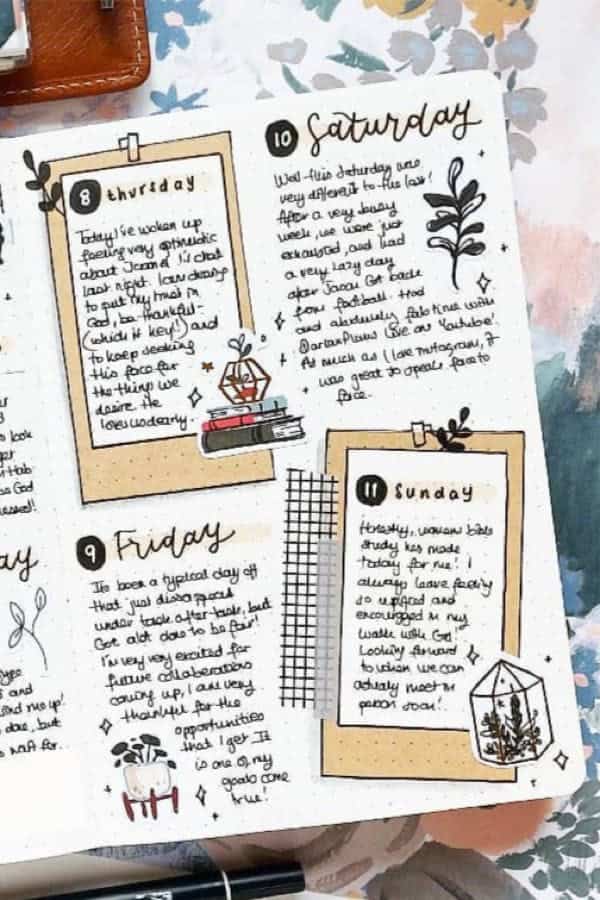 8 thursday
Today I've woken up
feeling very optimistic
about
last night. I am choosing
to put my trust in
God, be thankful-
(which is key!) and
to keep seeking
His face for
the things we
desire. He
loves us dearly.
9 Friday
Its been a typical day off
that just disappears
under task after task, but
Got alot done to be fair!
I'm very very excited for
future collaborations
coming up, I am very
thankful for the
opportunities
that I get. It
is one of my
goals come
true!
10 Saturday
Well this Saturday was
very different to the last!
After a very busy
week, we were just
exhausted, and had
a very lazy day
after Jason Got back
from football. Had
and absolutely fab time with
Live on Youtube!
As much as I love Instagram, it
was great to speak face to
face.
11 Sunday
Honestly, womens bible
study has made
today for me! I
always leave feeling
so uplifted and
encouraged in my
walk with God!
Looking forward
to when we can
actually meet in
person soon!
look
God
ay
s and
me up!
done, but